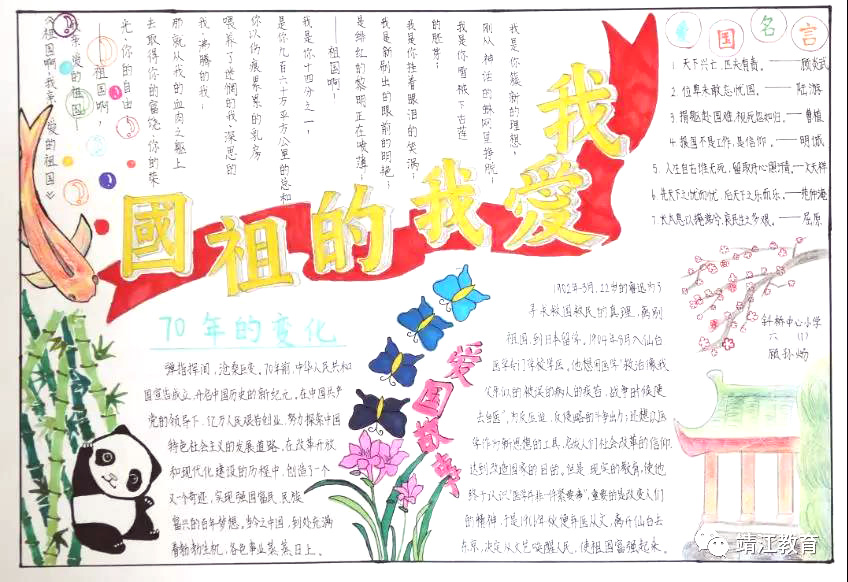 我是你簇新的理想，
刚从神话的蛛网里挣脱；
我是你雪被下古莲
的胚芽；
我是你挂着眼泪的笑涡；
我是新刷出的
是绯红的黎明正在喷薄；
——祖国啊！
我是你十四分之一，
是你九百六十万平方公里的总和
你以伤痕累累的乳房
喂养了迷惘的我，深思的
我，沸腾的我；
那就从我的血肉之躯上
去取得你的富饶，你的荣
光，你的自由
——祖国啊，
亲爱的祖国——
《祖国啊，我亲爱的祖国》
我愛我的祖國
爱国名言
1 天下兴亡，匹夫有责。——顾炎武
2 位卑未敢忘忧国。——陆游
3 捐躯赴国难，视死忽如归。——曹植
4 报国不是工作，是信仰。——明斌
5、人生自古谁无死，留取丹心照汗青。——文天祥
6、先天下之忧而忧，后天下之乐而乐。——范仲淹
7、长太息以掩涕兮，哀民生之多艰。——屈原
轩桥中心小学
六（1）
70年的变化
弹指挥间，沧桑巨变。70年前，中华人民共和
国宣告成立，开启中国历史的新纪元。在中国共产
党的领导下，亿万人民艰苦创业，努力探索中国
特色社会主义的发展道路，在改革开放
和现代化建设的历程中，创造了一个
又一个奇迹，实现强国富民、民族
复兴的百年梦想。当今之中国，到处充满
着勃勃生机，各色事业蒸蒸日上。
爱国故事
1902年3月，22岁的鲁迅为了
寻求救国救民的真理，离别
祖国，到日本留学。1904年9月入仙台
医学专门学校学医，他想用医学“救治像我
父亲似的被误的病人的疾苦，战争时候便
去当医”，为反压迫，反侵略的斗争出力；还想以医
学作为新思想的工具，启发人们社会改革的信仰，
达到改造国家的目的，但是 现实的教育，使他
终于认识“医学并非一件紧要事”，重要的是改变人们
的精神，于是1906年 放弃学医从文，离开仙台去
东京，决定从文艺唤醒人民，使祖国富强起来。
靖江教育